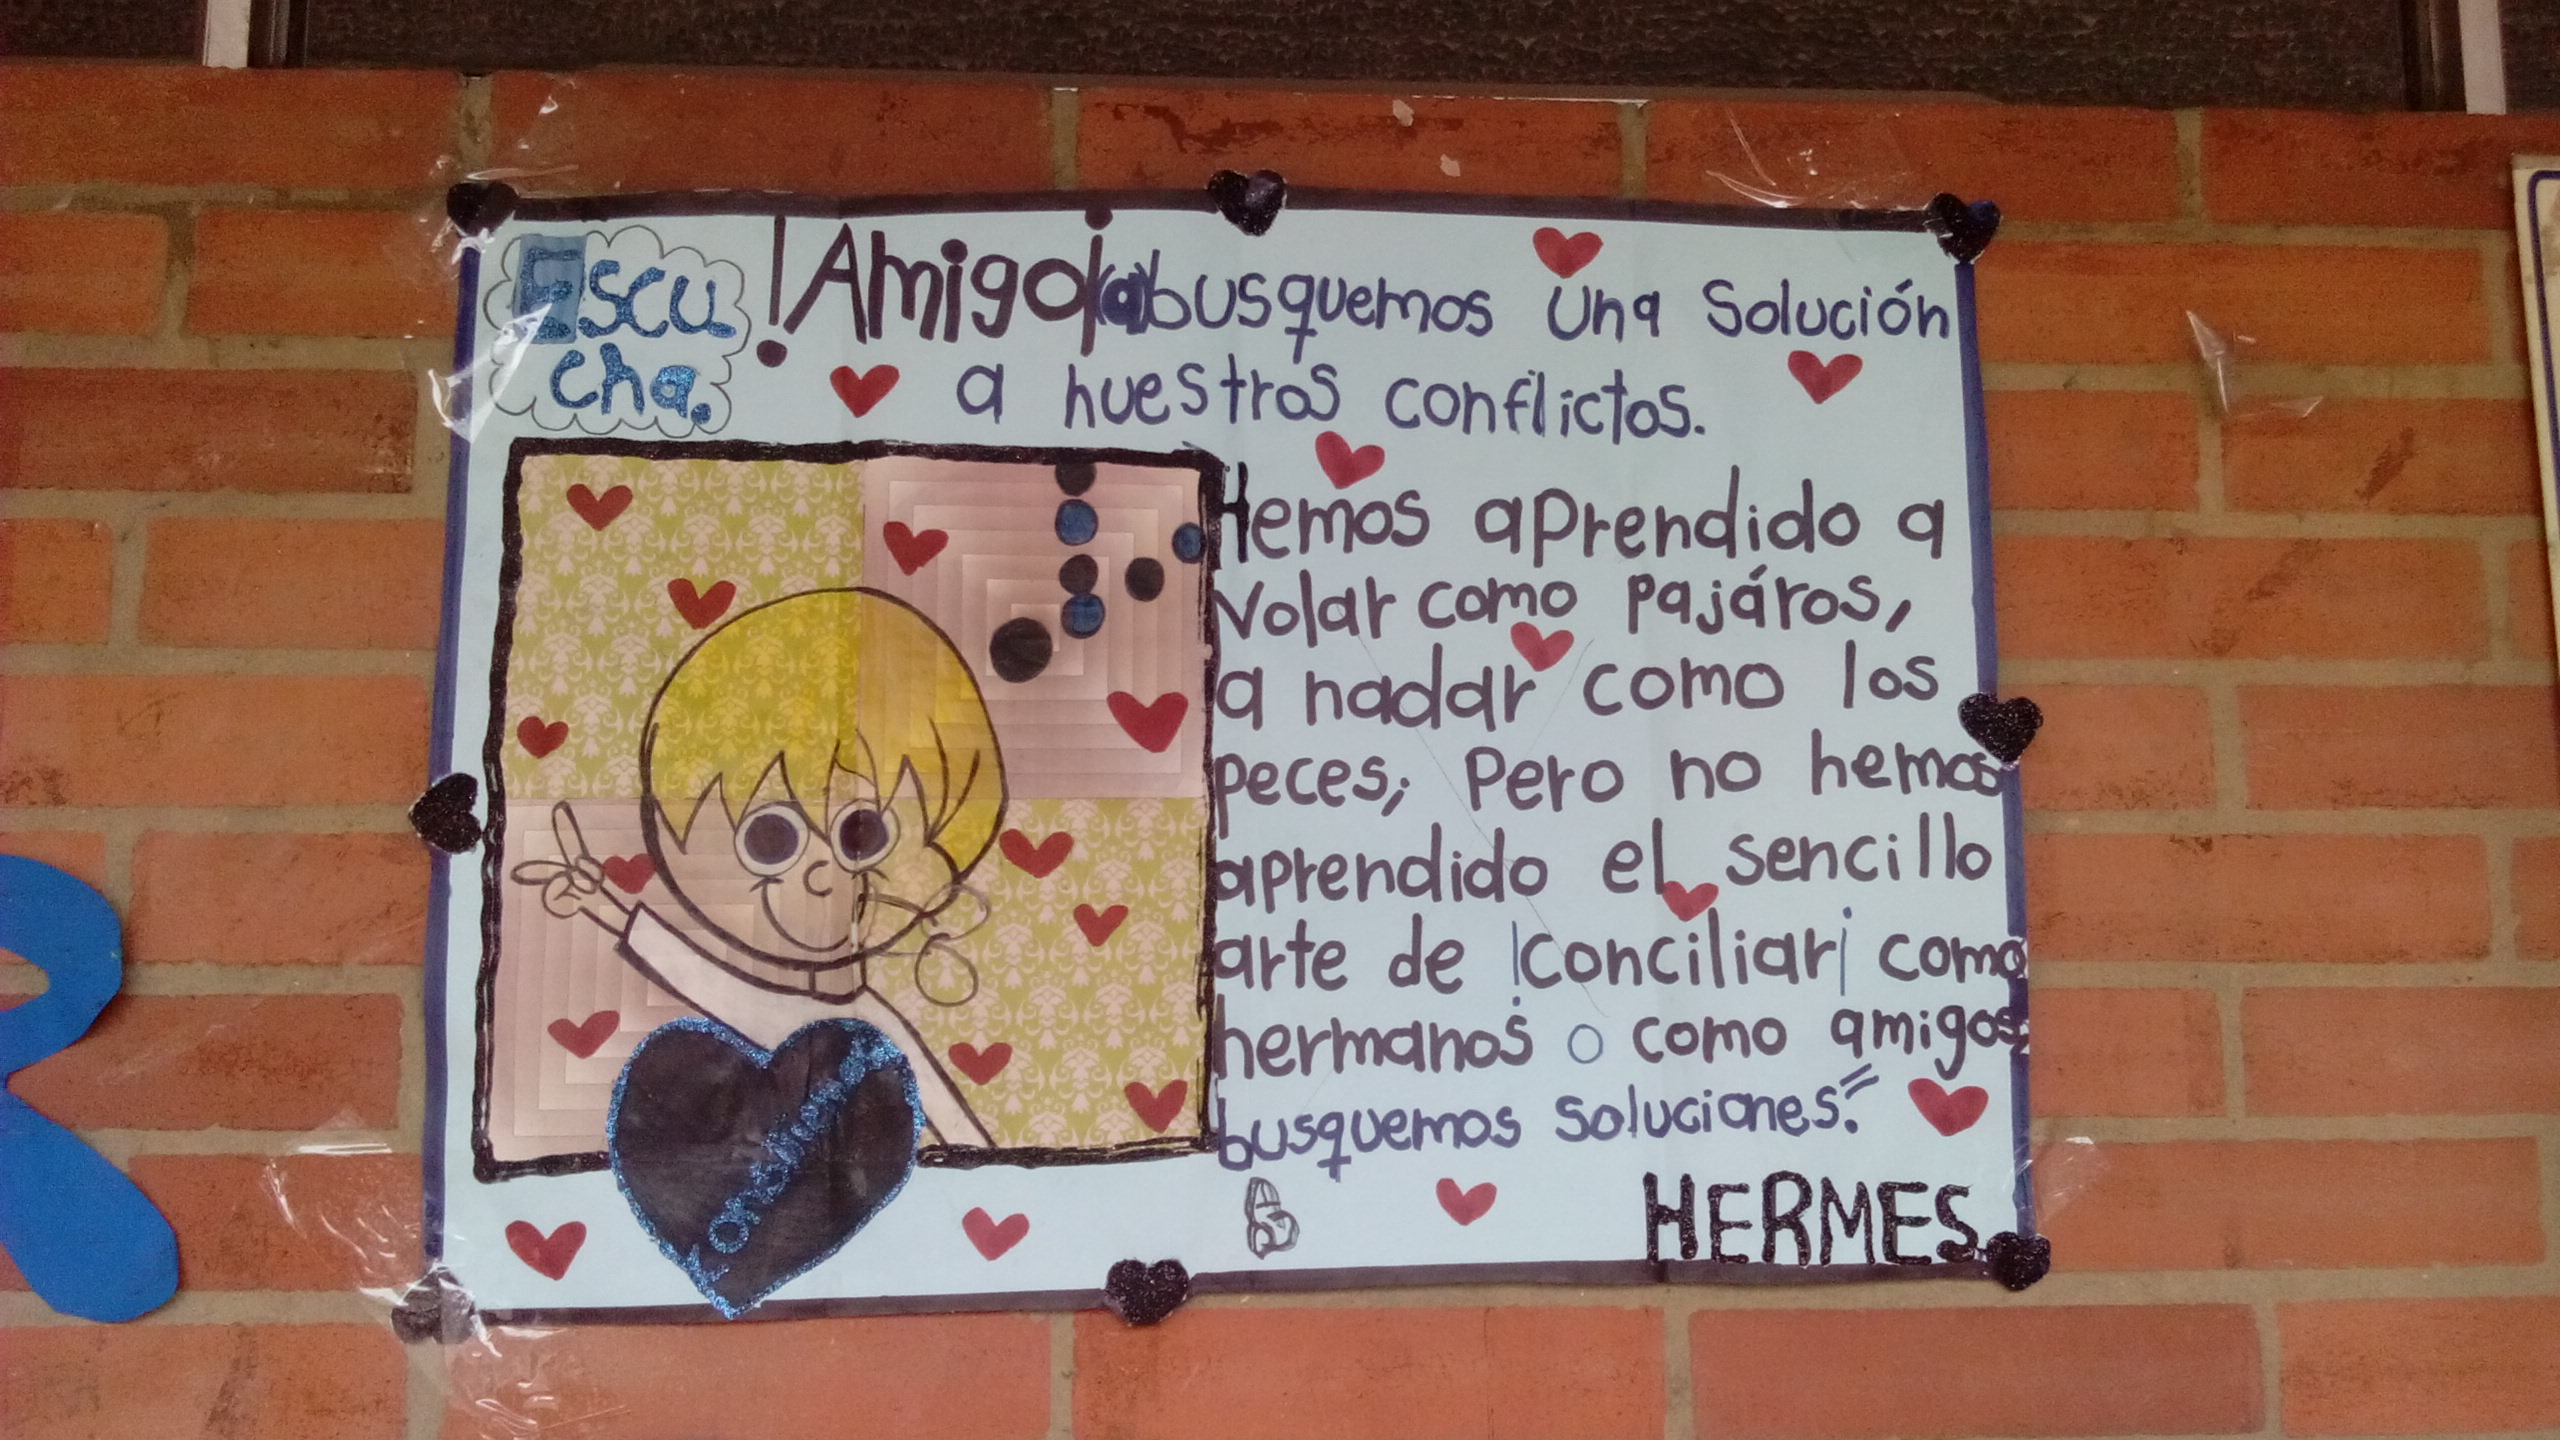 Escu
cha.
!Amigo¡(a) busquemos una solución
a nuestros conflictos.
Hemos aprendido a
volar como pajáros,
a nadar como los
peces; pero no hemos
aprendido el sencillo
arte de ¡conciliar! como
hermanos o como amigos,
busquemos soluciones."
HERMES